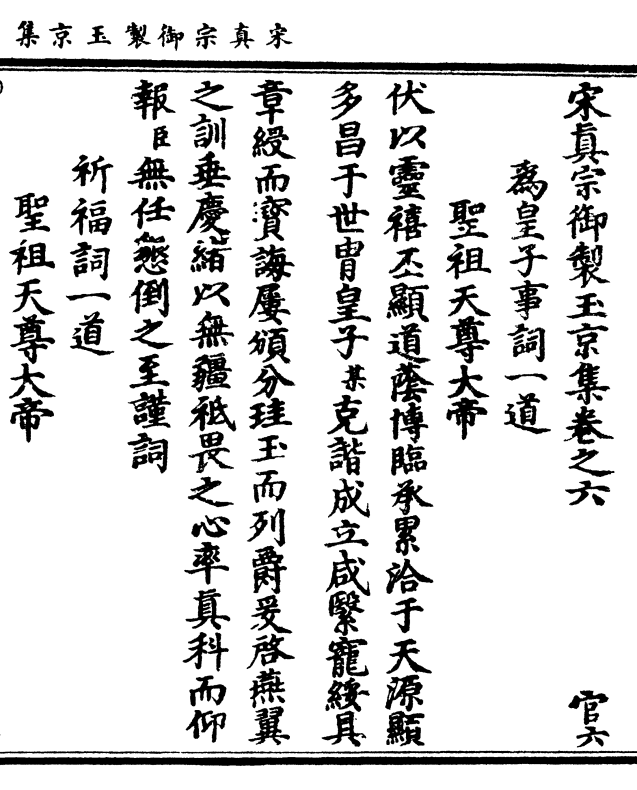 宋真宗御製玉京集
宋真宗御製玉京集卷之六 官六
爲皇子事詞一道
聖祖天尊大帝
伏以靈禧丕顯道蔭博臨承累洽于天源顯
多昌于世胄皇子某克諧成立咸繄寵綏具
章綬而寶誨屢頒分珪玉而列爵爰啓燕翼
之訓垂慶緒以無疆祗畏之心率真科而仰
報臣無任懇倒之至謹詞
祈福詞一道
聖祖天尊大帝